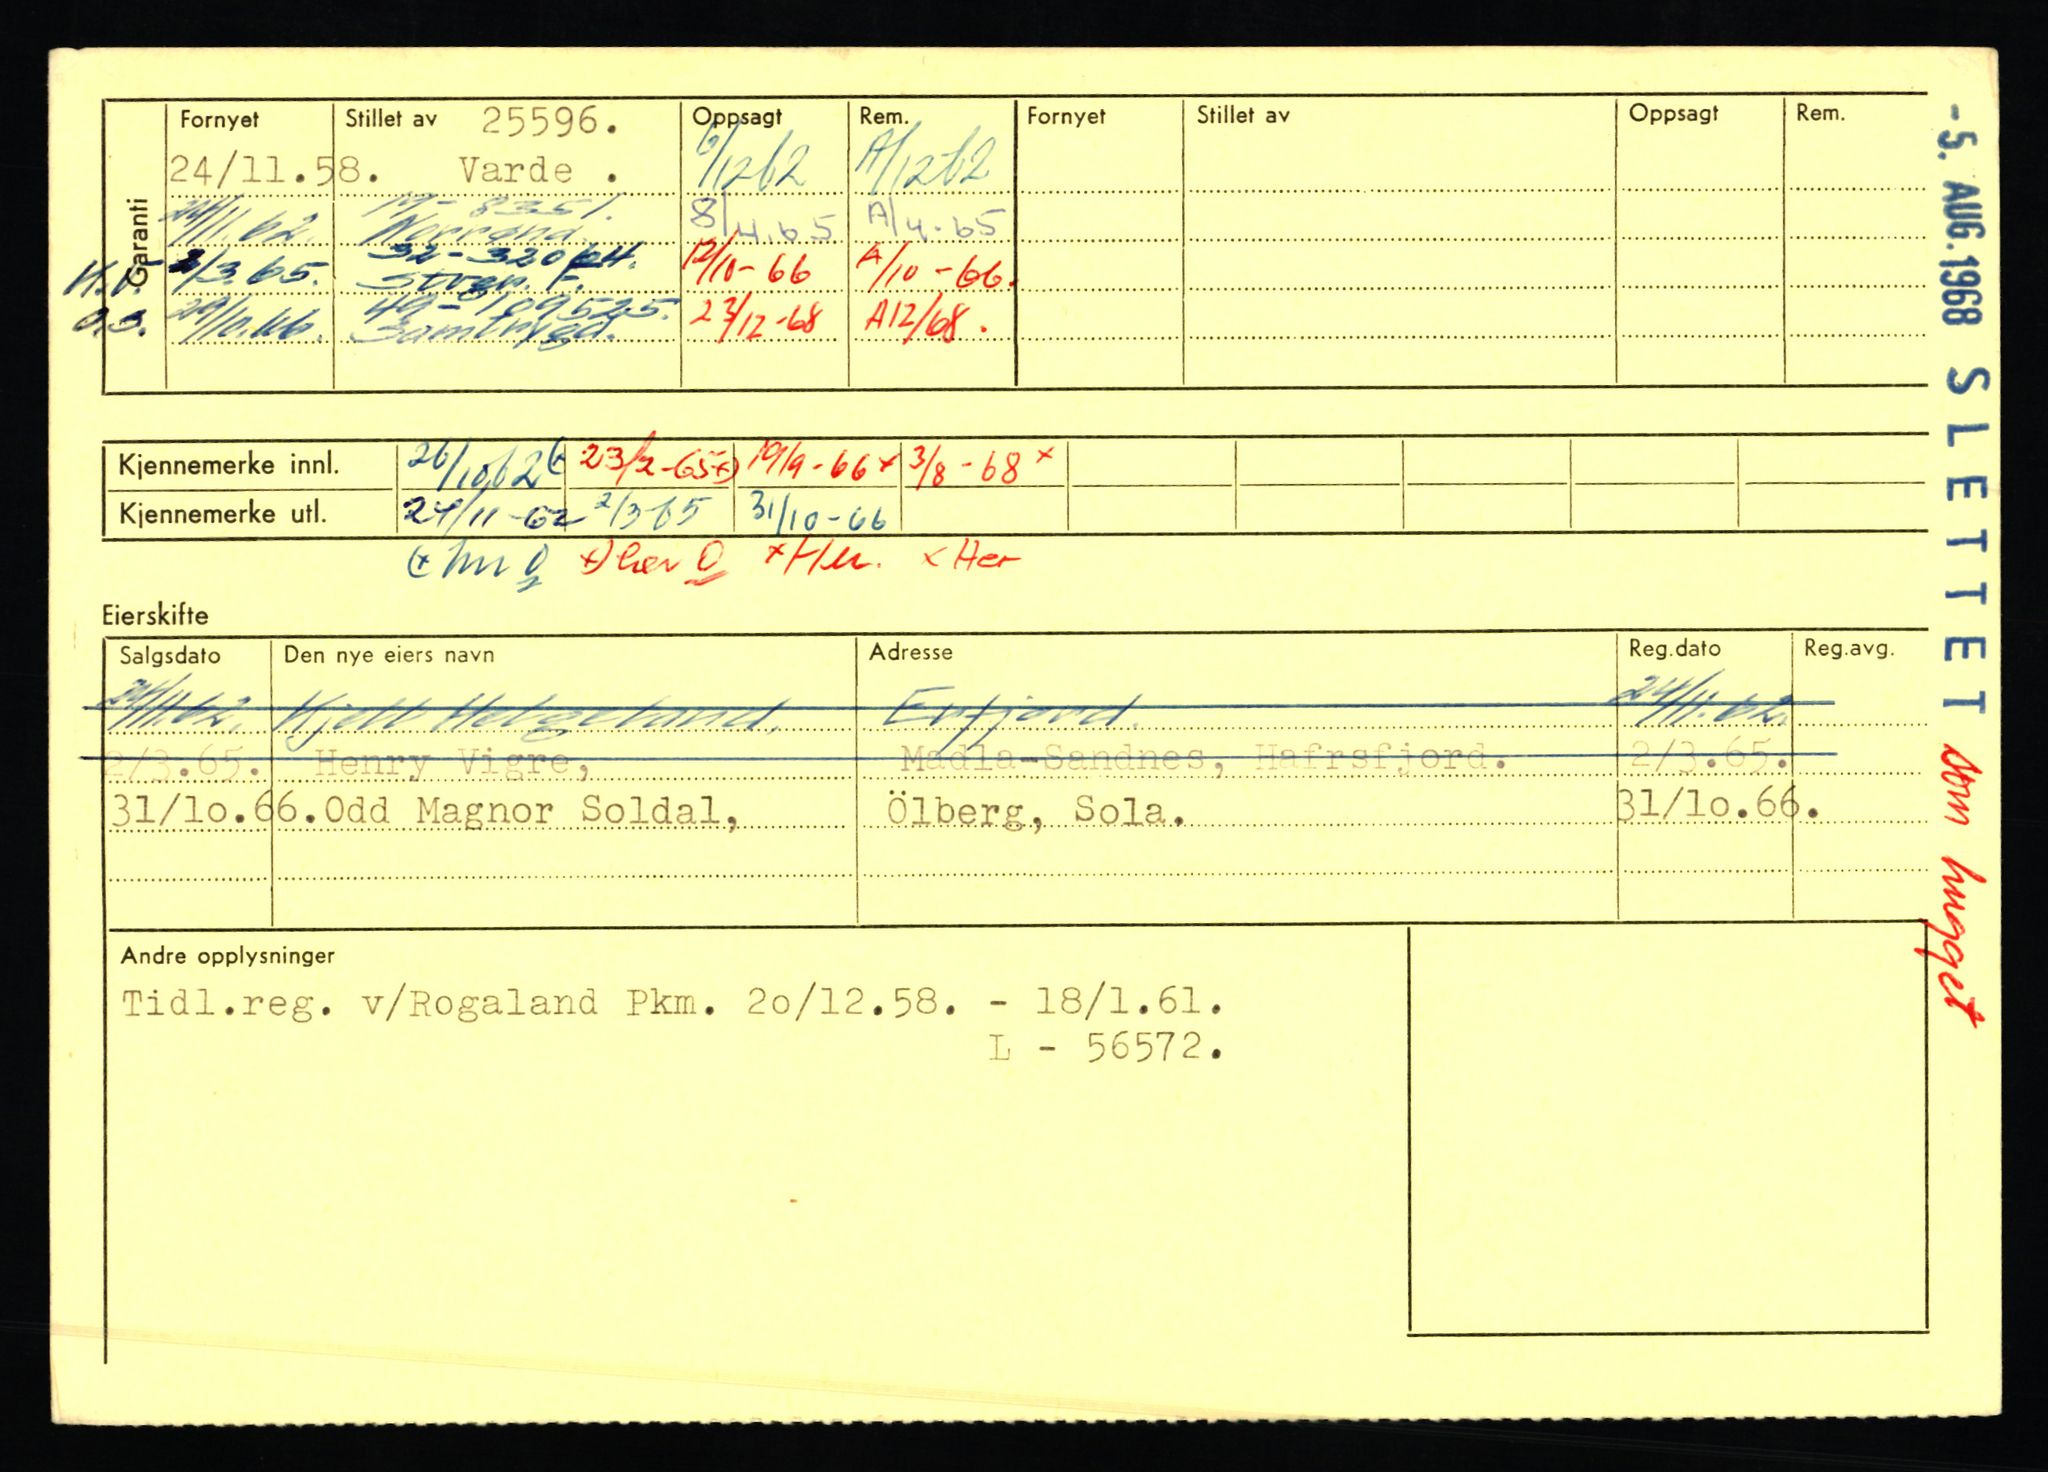 Garanti
Fornyet Stillet av 25596. Oppsagt Rem. Fornyet Stillet av Oppsagt Rem.
24/11.58. Varde . 6/12 62 A/12 62
24/11.62. M - 8351. 8/4.65 A/4.65
Norrøna.
2/3.65. 32-320 12/10-66 A/10-66.
29/10.66. 49-109525. 23/12-68 A12/68.
Samtrygd.
Kjennemerke innl. 26/10 62 (+ 23/2-65 +) 19/9-66 x 3/8-68 x
Kjennemerke utl. 24/11-62 2/3-65 31/10-66
+) her O x Her. x Her
Eierskifte
Salgsdato Den nye eiers navn Adresse Reg.dato Reg.avg.
24/11.62. Kjell Helgeland. Erfjord. 24/11.62.
2/3.65. Henry Vigre, Madla-Sandnes, Hafrsfjord. 2/3.65.
31/10.66. Odd Magnor Soldal, Ölberg, Sola. 31/10.66.
Andre opplysninger
Tidl.reg. v/Rogaland Pkm. 20/12.58. - 18/1.61.
L - 56572.
-5. AUG. 1968 SLETTET som hugget